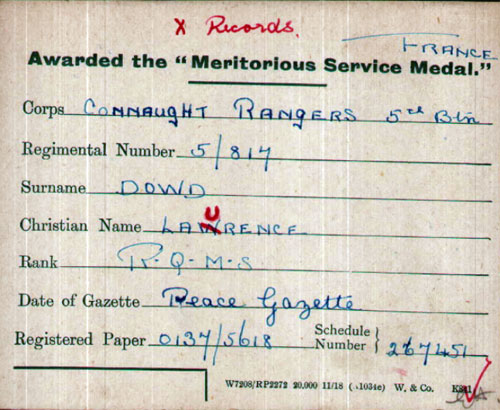 X Records.
FRANCE
Awarded the "Meritorious Service Medal."
Corps CONNAUGHT RANGERS 5th Btn
Regimental Number 5/817
Surname DOWD
Christian Name LAURENCE
Rank R.Q.M.S
Date of Gazette Peace Gazette
Registered Paper 0137/5618 Schedule Number } 267451
W7208/RP2272 20,000 11/18 (41034e) W. & Co.